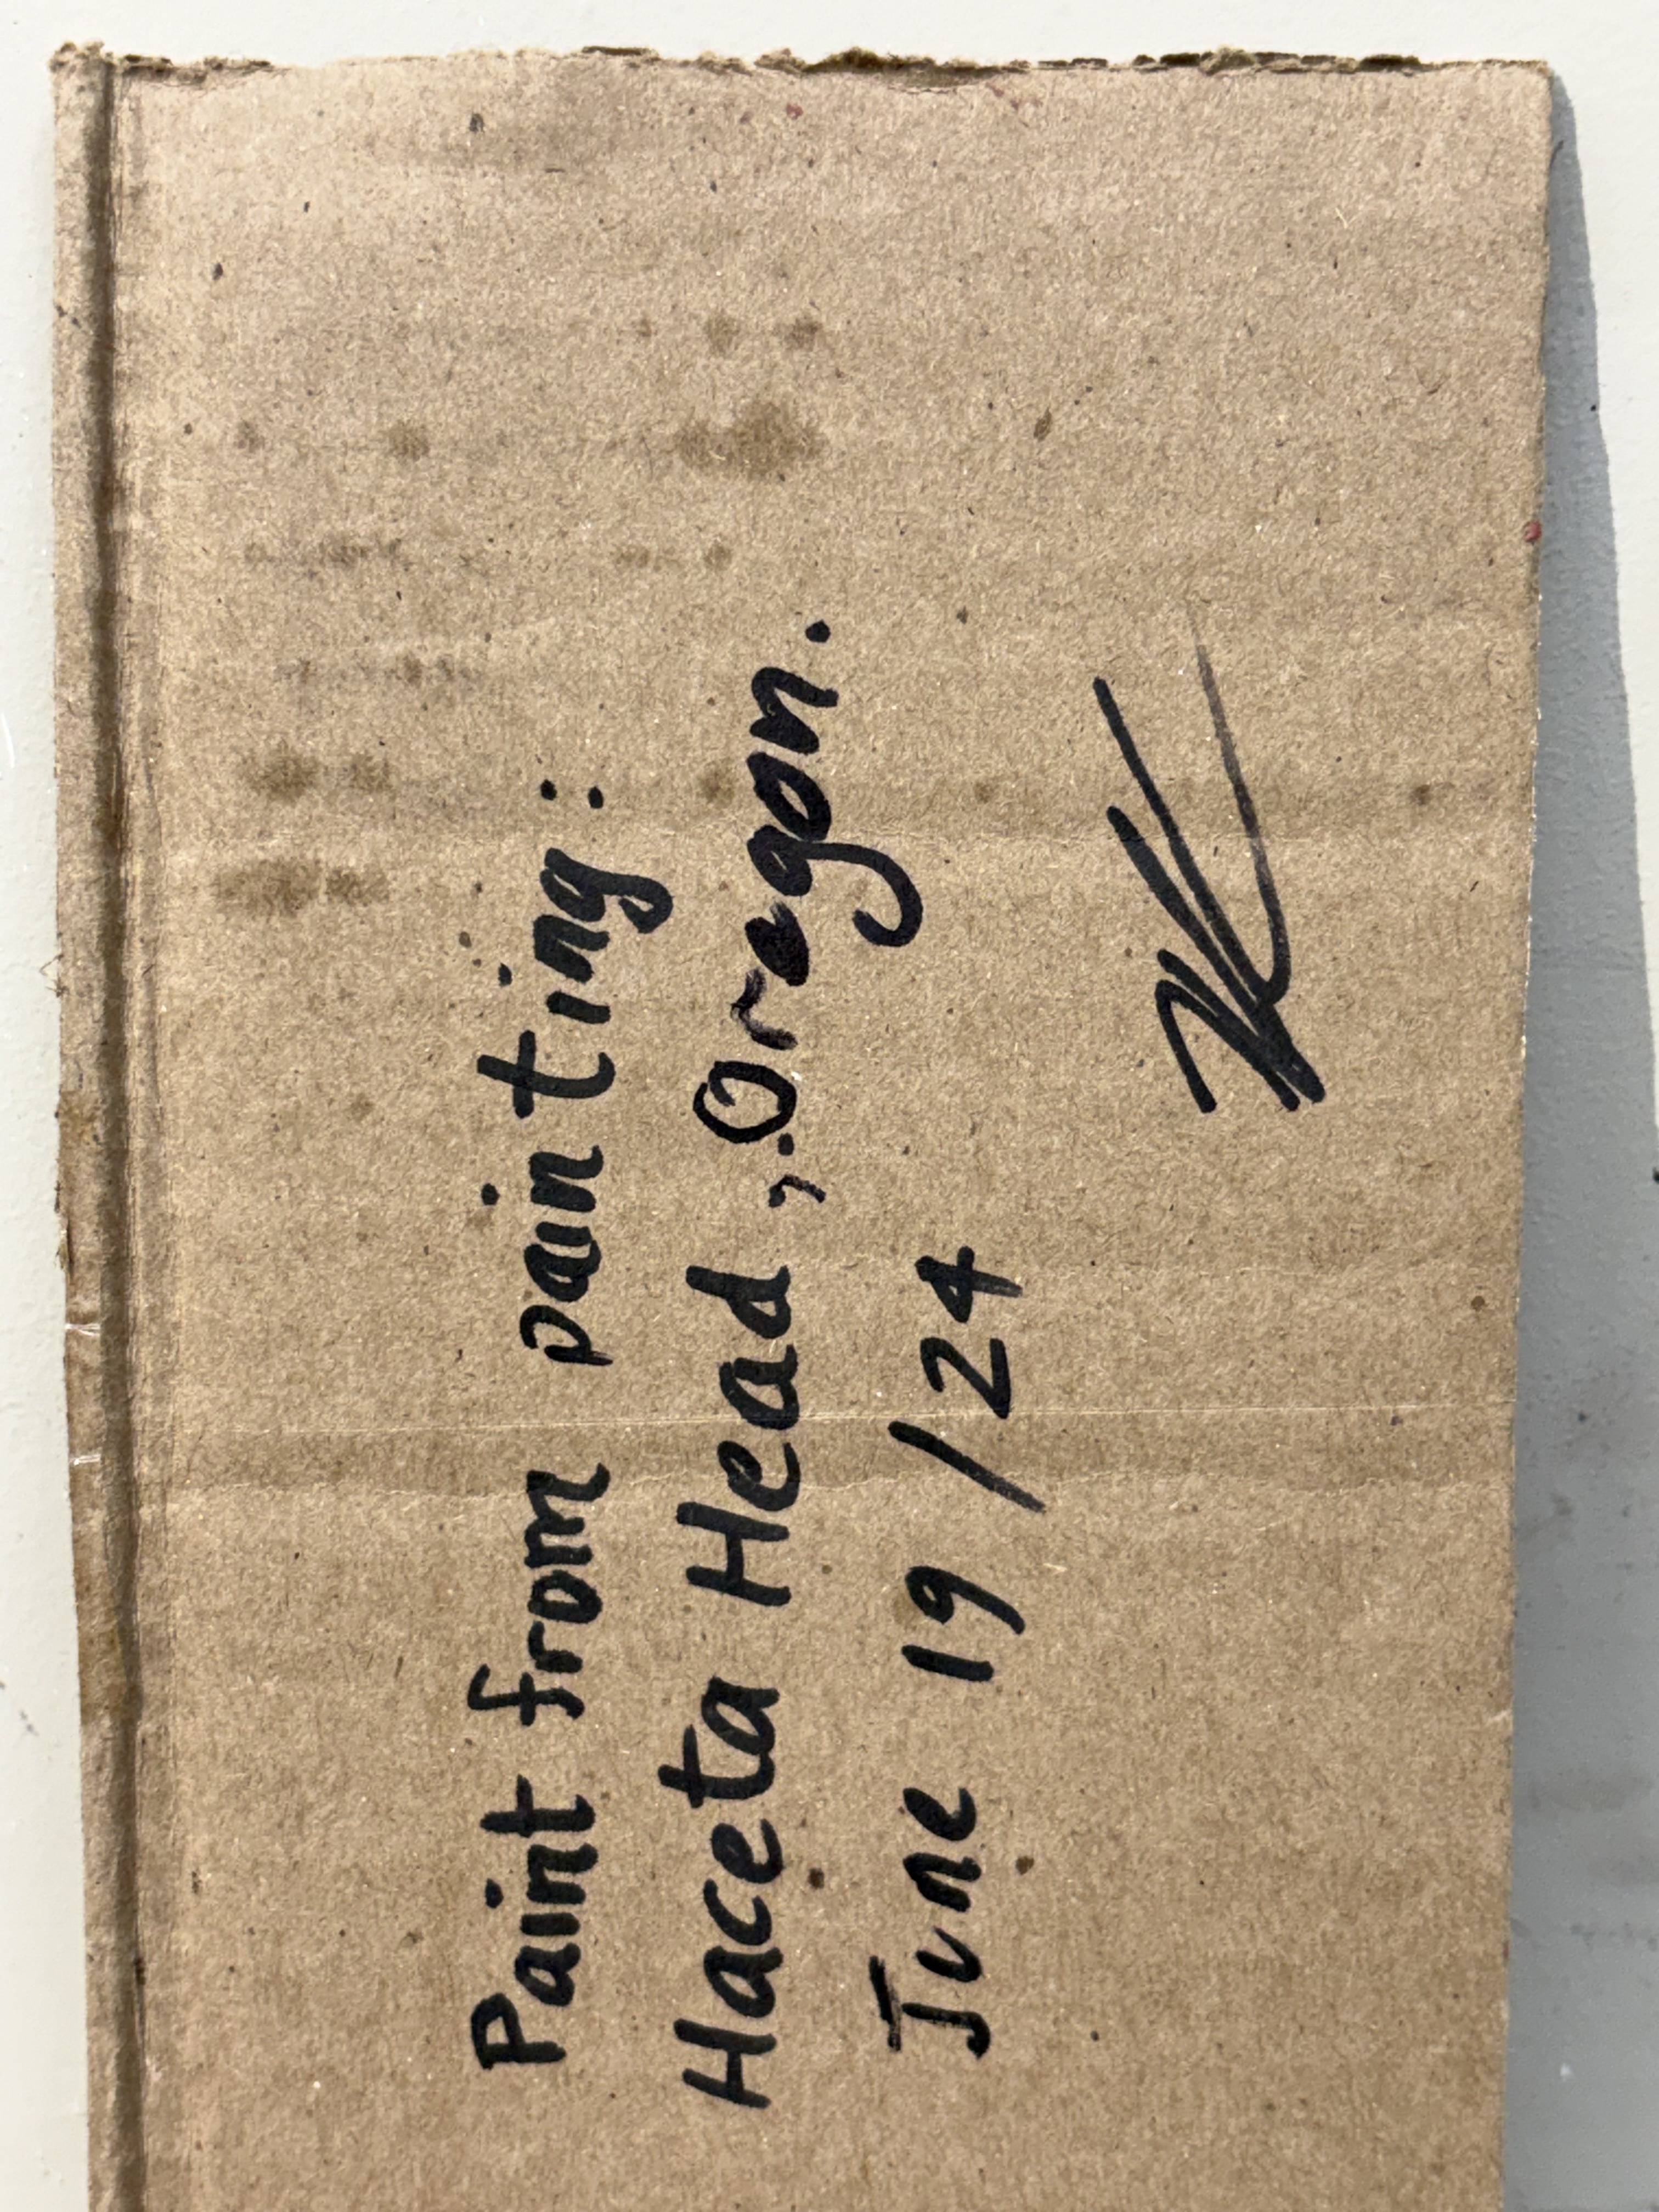 Paint from painting:
Haceta Head, Oregon.
June 19/24